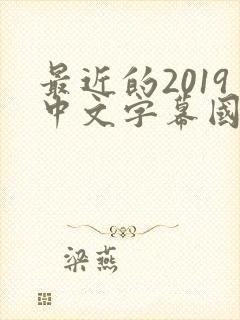 最近的2019
中文字幕國
梁燕